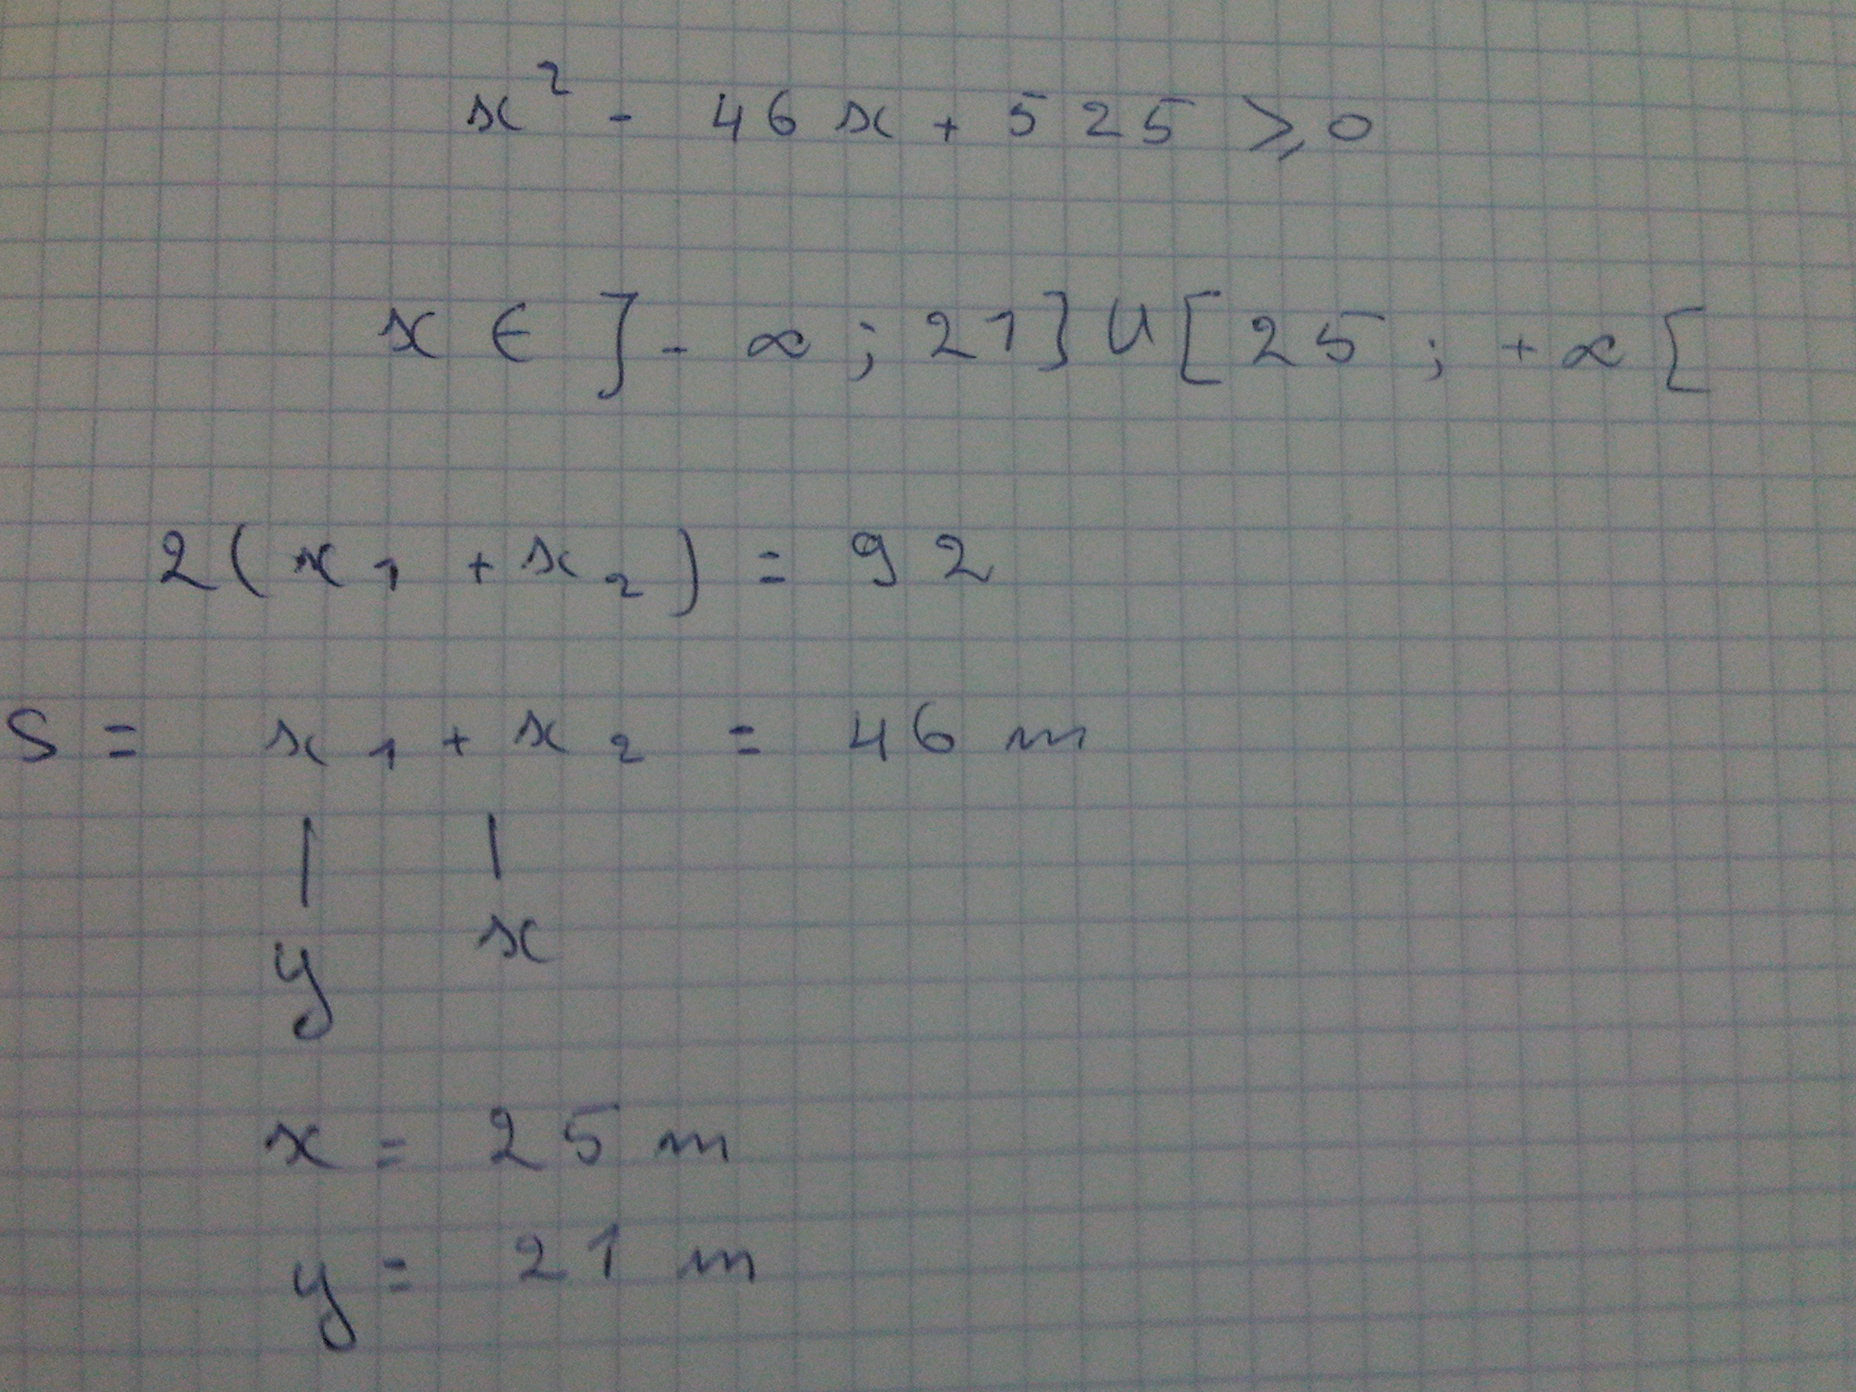 x² - 46x + 525 ⩾ 0
x ∈ ]-∞ ; 21] U [25 ; +∞[
2(x₁ + x₂) = 92
S = x₁ + x₂ = 46 m
| |
y x
x = 25 m
y = 21 m